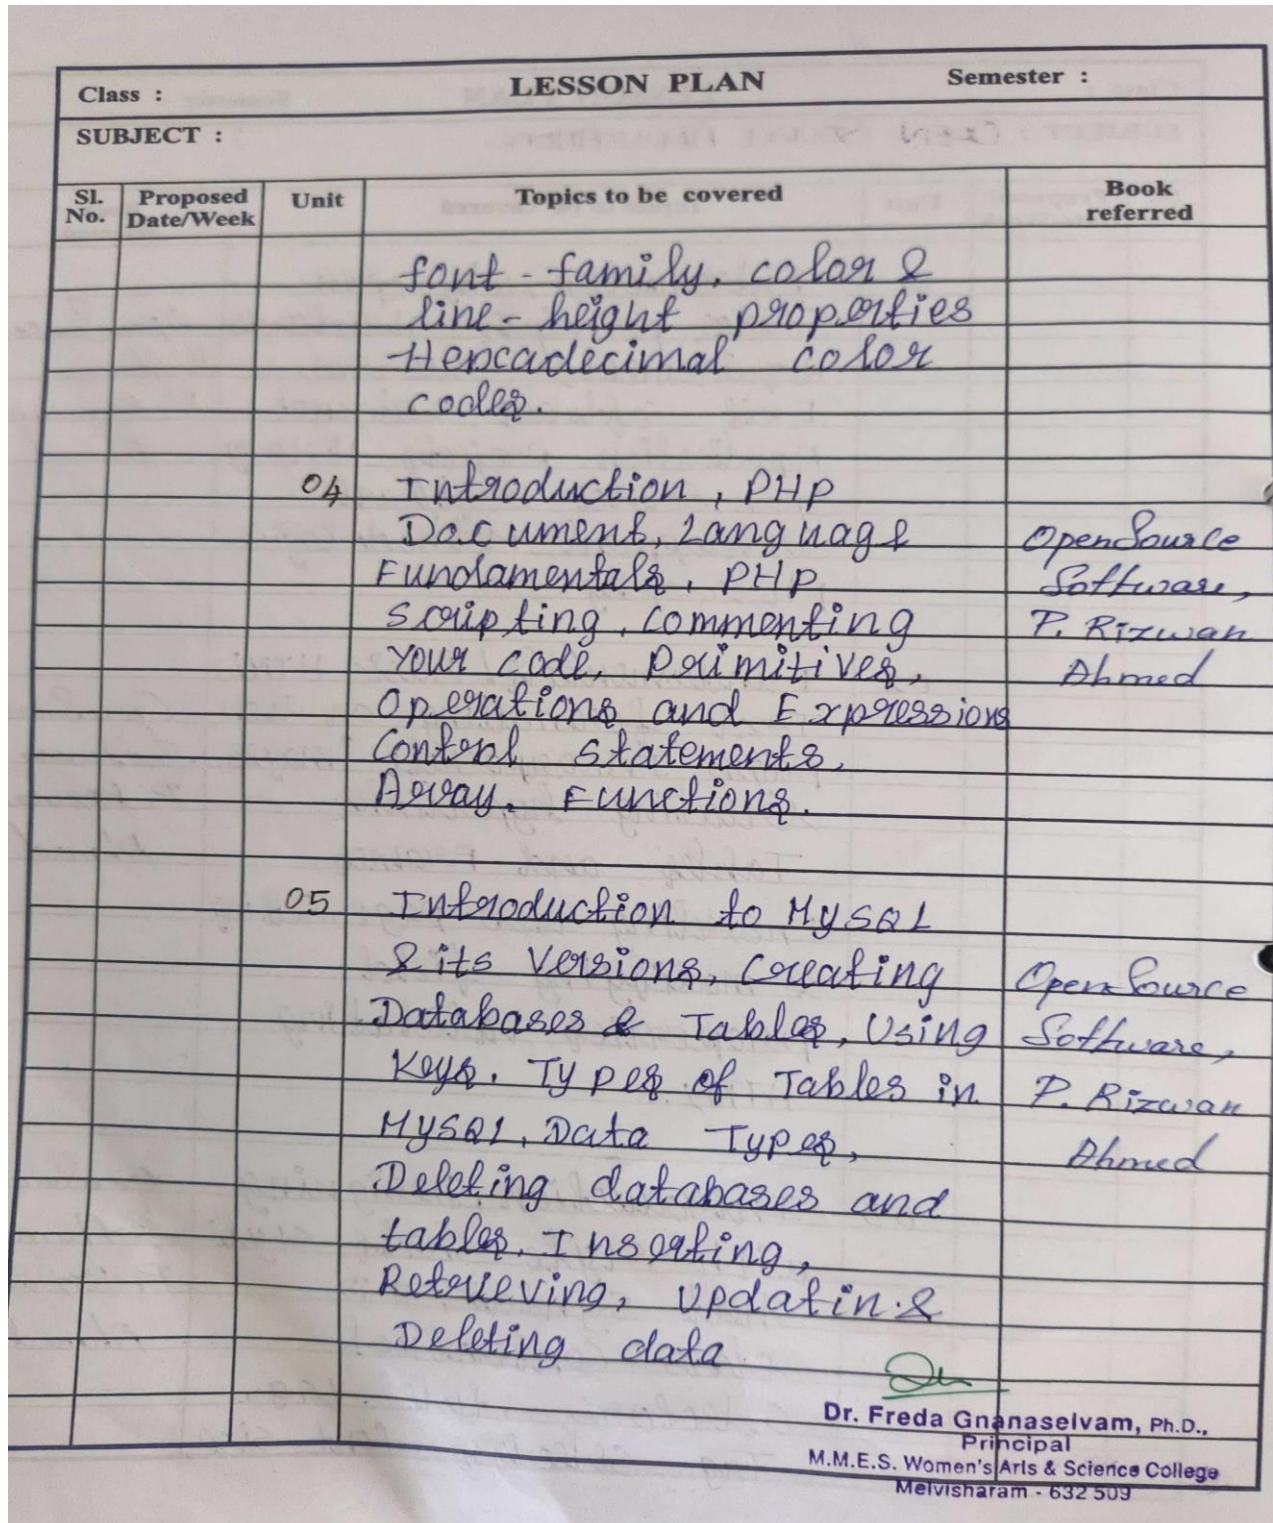 LESSON PLAN
Class :
Semester :
SUBJECT :
Sl. No.
Proposed Date/Week
Unit
Topics to be covered
Book referred
font - family, color &
line - height properties
Hexcadecimal color
codes.
04 Introduction, PHP
Document, Language
Fundamentals, PHP
Scripting, Commenting
Your code, Primitives,
Operations and Expressions
Control statements,
Array, Functions.
Open Source
Software,
P. Rizwan
Ahmed
05 Introduction to MySQL
& its Versions, Creating
Databases & Tables, Using
Keys, Types of Tables in
MySQL, Data Types,
Deleting databases and
tables, Inserting,
Retrieving, Updatin. &
Deleting data
Open Source
Software,
P. Rizwan
Ahmed
Dr. Freda Gnanaselvam, Ph.D.,
Principal
M.M.E.S. Women's Arts & Science College
Melvisharam - 632 509